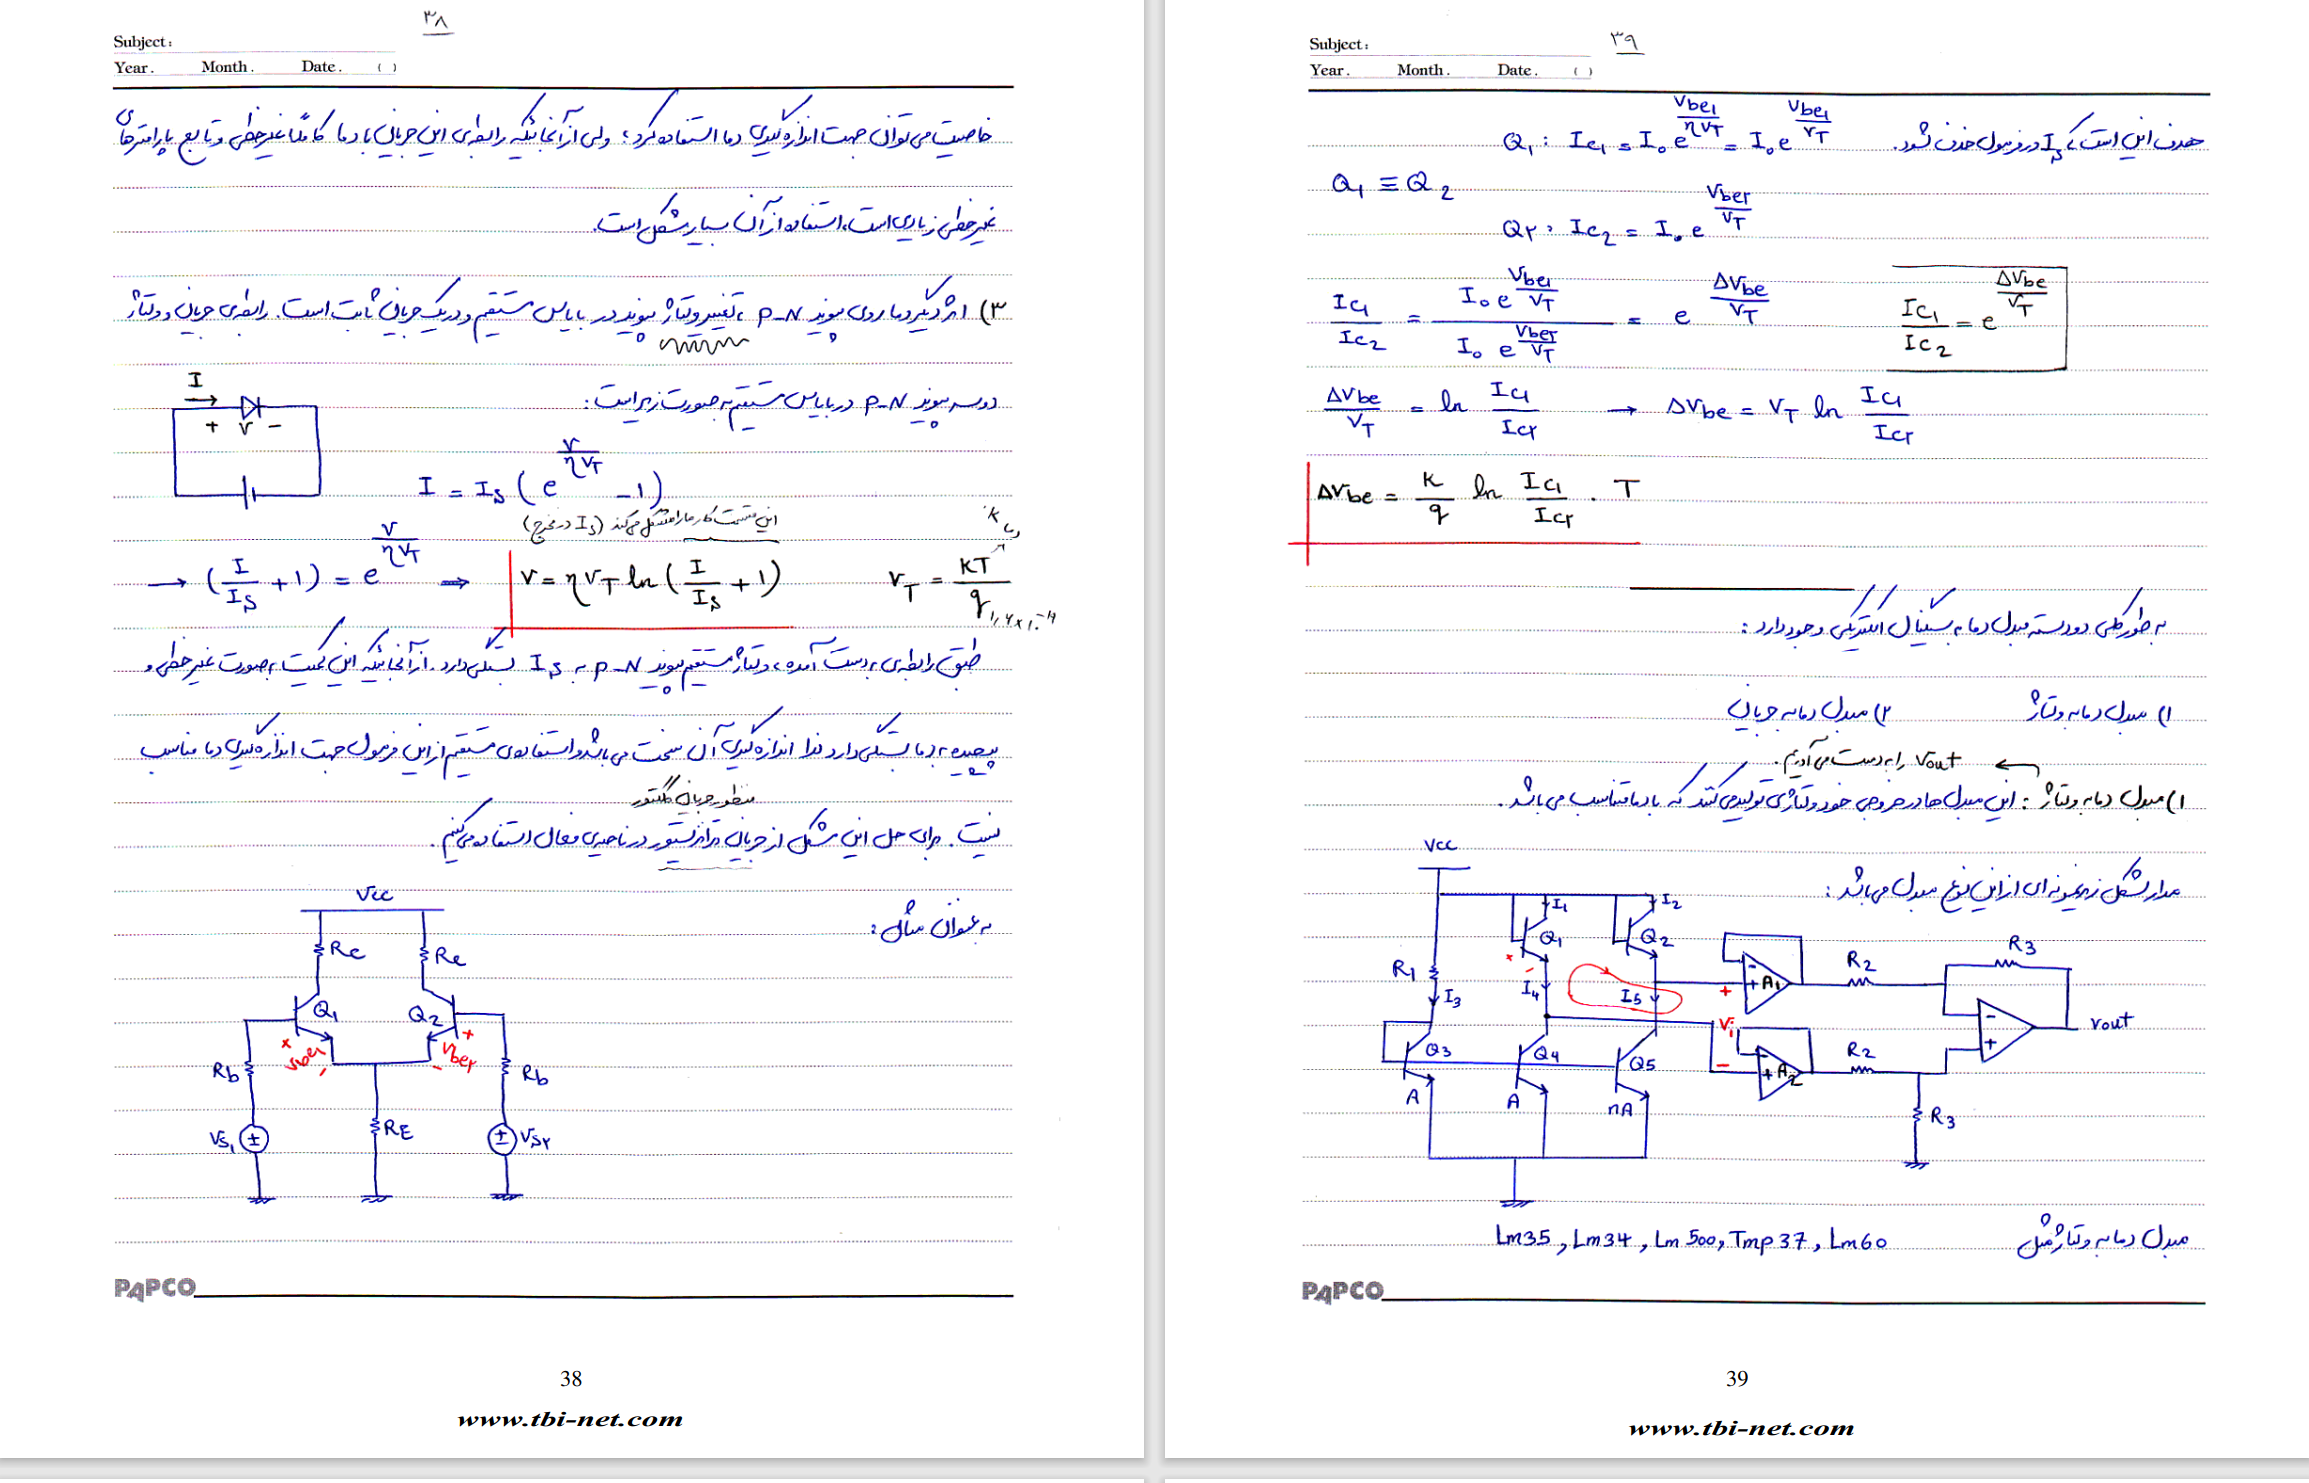 ۳۸
Subject:
Year. Month. Date. ( )
خاصیت می‌توان جهت اندازه‌گیری دما استفاده کرد؛ ولی از آنجائیکه رابطه‌ی این جریان با دما کاملاً غیرخطی و تابع پارامترهای
غیرخطی زیادی است، استفاده از آن بسیار مشکل است.
۳) اثر دیگر دما روی پیوند P-N، تغییر ولتاژ پیوند در بایاس مستقیم و در یک جریان ثابت است. رابطه‌ی جریان و ولتاژ
دو سر پیوند P-N در بایاس مستقیم به صورت زیر است:
I
+ V -
I = Is ( e^(V/ηVT) - 1 )
این قسمت کار ما را مشکل می‌کند (Is در مخرج)
→ ( I/Is + 1 ) = e^(V/ηVT) ⇒ V = ηVT ln ( I/Is + 1 ) VT = KT/q
طبق رابطه‌ی بدست آمده، ولتاژ مستقیم پیوند P-N به Is بستگی دارد. از آنجائیکه این کمیت بصورت غیرخطی و
پیچیده به دما بستگی دارد لذا اندازه‌گیری آن سخت می‌باشد و استفاده‌ی مستقیم از این فرمول جهت اندازه‌گیری دما مناسب
منظور جریان کلکتور
نیست. برای حل این مشکل از جریان ترانزیستور در ناحیه‌ی فعال استفاده می‌کنیم.
به عنوان مثال:
Vcc
Rc Rc
Q1 Q2
+ Vbe1 - + Vbe۲ -
Rb Rb
RE
Vs۱ Vs۲
PAPCO
38
www.tbi-net.com
۳۹
Subject:
Year. Month. Date. ( )
هدف این است که Is در فرمول حذف شود.
Q1: Ic1 = I0 e^(Vbe1/ηVT) = I0 e^(Vbe1/VT)
Q1 ≡ Q2
Q۲: Ic2 = I0 e^(Vbe۲/VT)
Ic1/Ic2 = I0 e^(Vbe1/VT) / I0 e^(Vbe۲/VT) = e^(ΔVbe/VT) Ic1/Ic2 = e^(ΔVbe/VT)
ΔVbe/VT = ln Ic1/Ic۲ → ΔVbe = VT ln Ic1/Ic۲
ΔVbe = K/q ln Ic1/Ic۲ . T
به طور کلی دو دسته مبدل دما به سیگنال الکتریکی وجود دارد:
۱) مبدل دما به ولتاژ ۲) مبدل دما به جریان
Vout را به دست می‌آوریم.
۱) مبدل دما به ولتاژ: این مبدل‌ها در خروجی خود ولتاژی تولید می‌کنند که با دما متناسب می‌باشد.
مدار شکل زیر نمونه‌ای از این نوع مبدل می‌باشد:
Vcc
I1 I2
Q1 Q2
R1 I3 I4 I5
A1 R2 R3
Vi
Vout
Q3 Q4 Q5
A2 R2
A A nA
R3
مبدل دما به ولتاژ مثل Lm35, Lm34, Lm500, Tmp37, Lm60
PAPCO
39
www.tbi-net.com